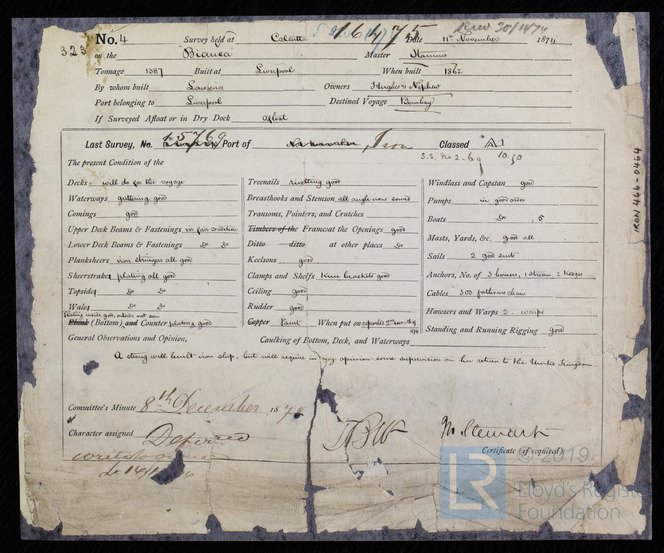 No. 4 Survey held at Calcutta Date 11th November 1874
323 on the Bianca Master
16475
Tonnage 1387 Built at Liverpool When built 1862
By whom built Owners Hughes & Nephew
Port belonging to Liverpool Destined Voyage Bombay
If Surveyed Afloat or in Dry Dock Afloat
Last Survey, No. 15769 Port of Iron Classed A1
S.S. No 2-69 10.50
The present Condition of the
Decks will do for the voyage
Waterways guttering good
Comings good
Upper Deck Beams & Fastenings in fair condition
Lower Deck Beams & Fastenings do do
Planksheers iron stringers all good
Sheerstrakes plating all good
Topsides do do
Wales do do
Plank (Bottom) and Counter plating good
General Observations and Opinion,
Treenails rivetting good
Breasthooks and Stemson all angle iron sound
Transoms, Pointers, and Crutches
Timbers of the Frame at the Openings good
Ditto ditto at other places do
Keelsons good
Clamps and Shelfs Knee brackets good
Ceiling good
Rudder good
Copper Paint When put on
Caulking of Bottom, Deck, and Waterways
Windlass and Capstan good
Pumps in good order
Boats do 5
Masts, Yards, &c. good all
Sails 2 good suits
Anchors, No. of 3 bowers, 1 stream, 2 kedges
Cables 300 fathoms chain
Hawsers and Warps 2 warps
Standing and Running Rigging good
A strong well built iron ship, but will require in my opinion some supervision on her return to the United Kingdom
Committee's Minute 8th December 187
Character assigned Deferred
M. Stewart
Certificate (if required)
IRON 466-0464
© 2019
LR
Lloyd's Register
Foundation